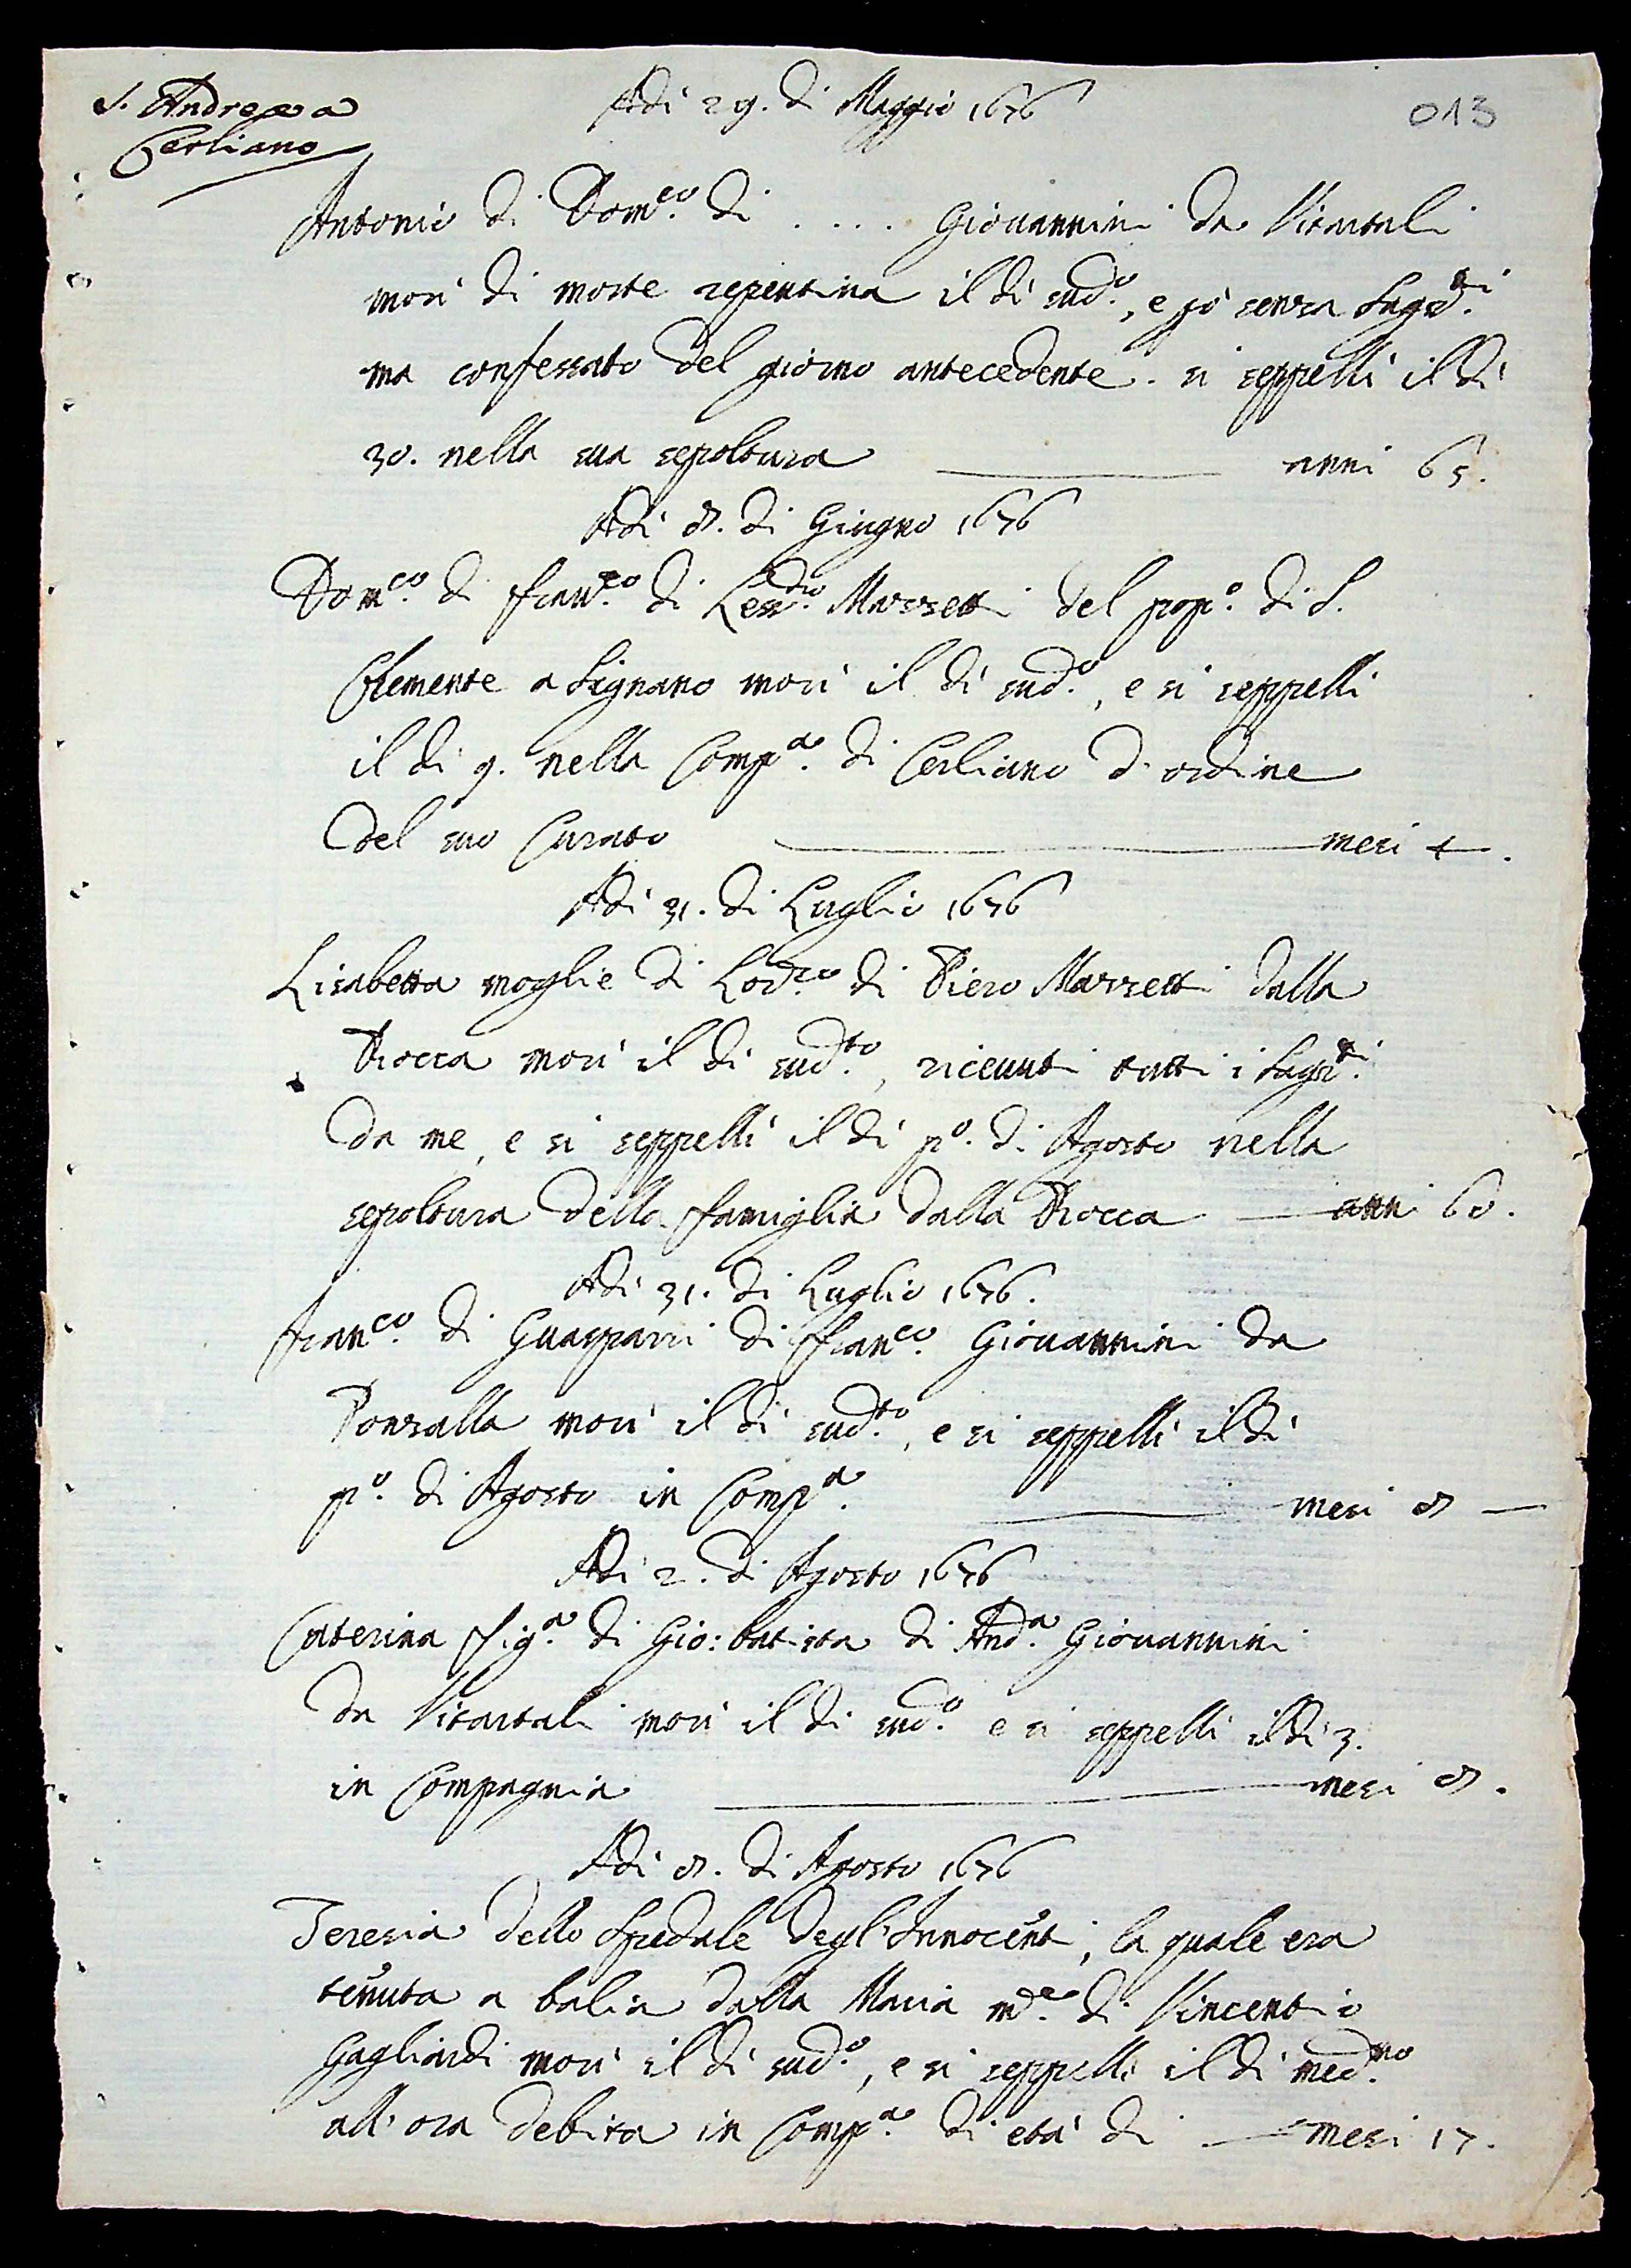 S. Andrea a
Cerliano
Adi 29. di Maggio 1676
013
Antonio di Dom.co di .... Giovannini da Vitartali
morì di morte repentina il dì sud.o, e però senza Sagr.ti
ma confessato del giorno antecedente. si seppellì il dì
30. nella sua sepoltura ——— anni 65.
Adi 8. di Giugno 1676
Dom.co di Fran.co di Mazzetti del pop.o di S.
Clemente a Signano morì il dì sud.o, e si seppellì
il dì 9. nella Comp.a di Cerliano d'ordine
del suo Curato ——— mesi 4.
Adi 31. di Luglio 1676
Lisabetta moglie di Lod.co di Piero Mazzetti dalla
Rocca morì il dì sud.to, ricevuti tutti i Sagr.ti
da me, e si seppellì il dì p.o di Agosto nella
sepoltura della famiglia dalla Rocca ——— anni 60.
Adi 31. di Luglio 1676.
Fran.co di Guasparri di Fran.co Giovannini da
Ponzalla morì il dì sud.to, e si seppellì il dì
p.o di Agosto in Comp.a ——— mesi 8 —
Adi 2. di Agosto 1676
Caterina fig.a di Gio: batista di And.a Giovannini
da Vitartali morì il dì sud.o e si seppellì il dì 3.
in Compagnia ——— mesi 8.
Adi 8. di Agosto 1676
Teresia dello Spedale degl'Innocenti, la quale era
tenuta a balia dalla Maria m.e di Vincentio
Gagliardi morì il dì sud.o, e si seppellì il dì med.mo
all'ora debita in Comp.a di età di — mesi 17.